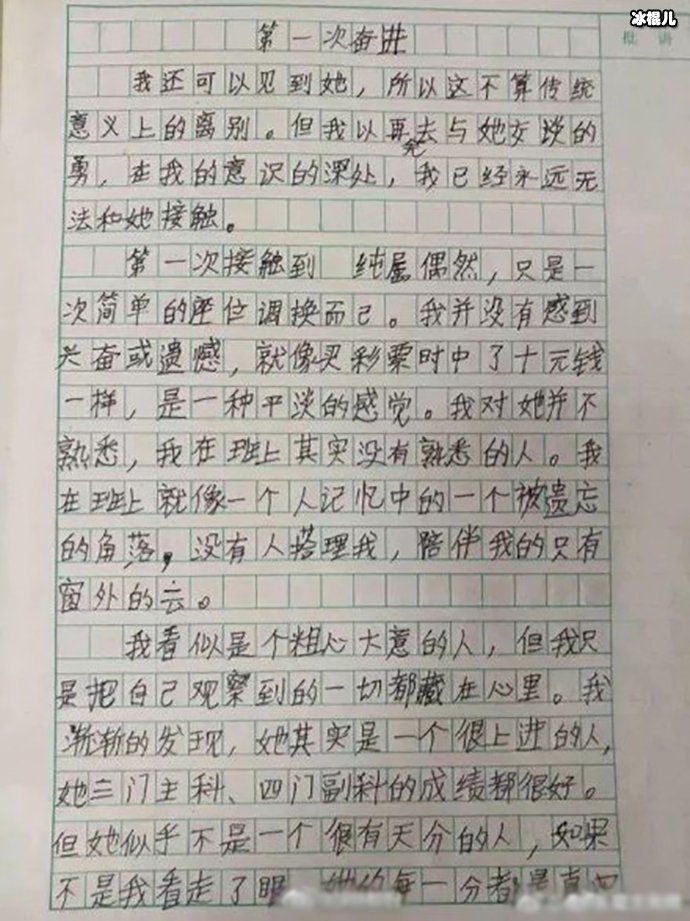 冰棍儿
批语
第一次奋进
我还可以见到她，所以这不算传统
意义上的离别。但我以再去与她交谈的
勇，在我的意识的深处，我已经永远无
法和她接触。
第一次接触到 纯属偶然，只是一
次简单的座位调换而已。我并没有感到
兴奋或遗憾，就像买彩票时中了十元钱
一样，是一种平淡的感觉。我对她并不
熟悉，我在班上其实没有熟悉的人。我
在班上就像一个人记忆中的一个被遗忘
的角落，没有人搭理我，陪伴我的只有
窗外的云。
我看似是个粗心大意的人，但我只
是把自己观察到的一切都藏在心里。我
渐渐的发现，她其实是一个很上进的人，
她三门主科、四门副科的成绩都很好。
但她似乎不是一个很有天分的人，如果
不是我看走了眼，她的每一分都是真